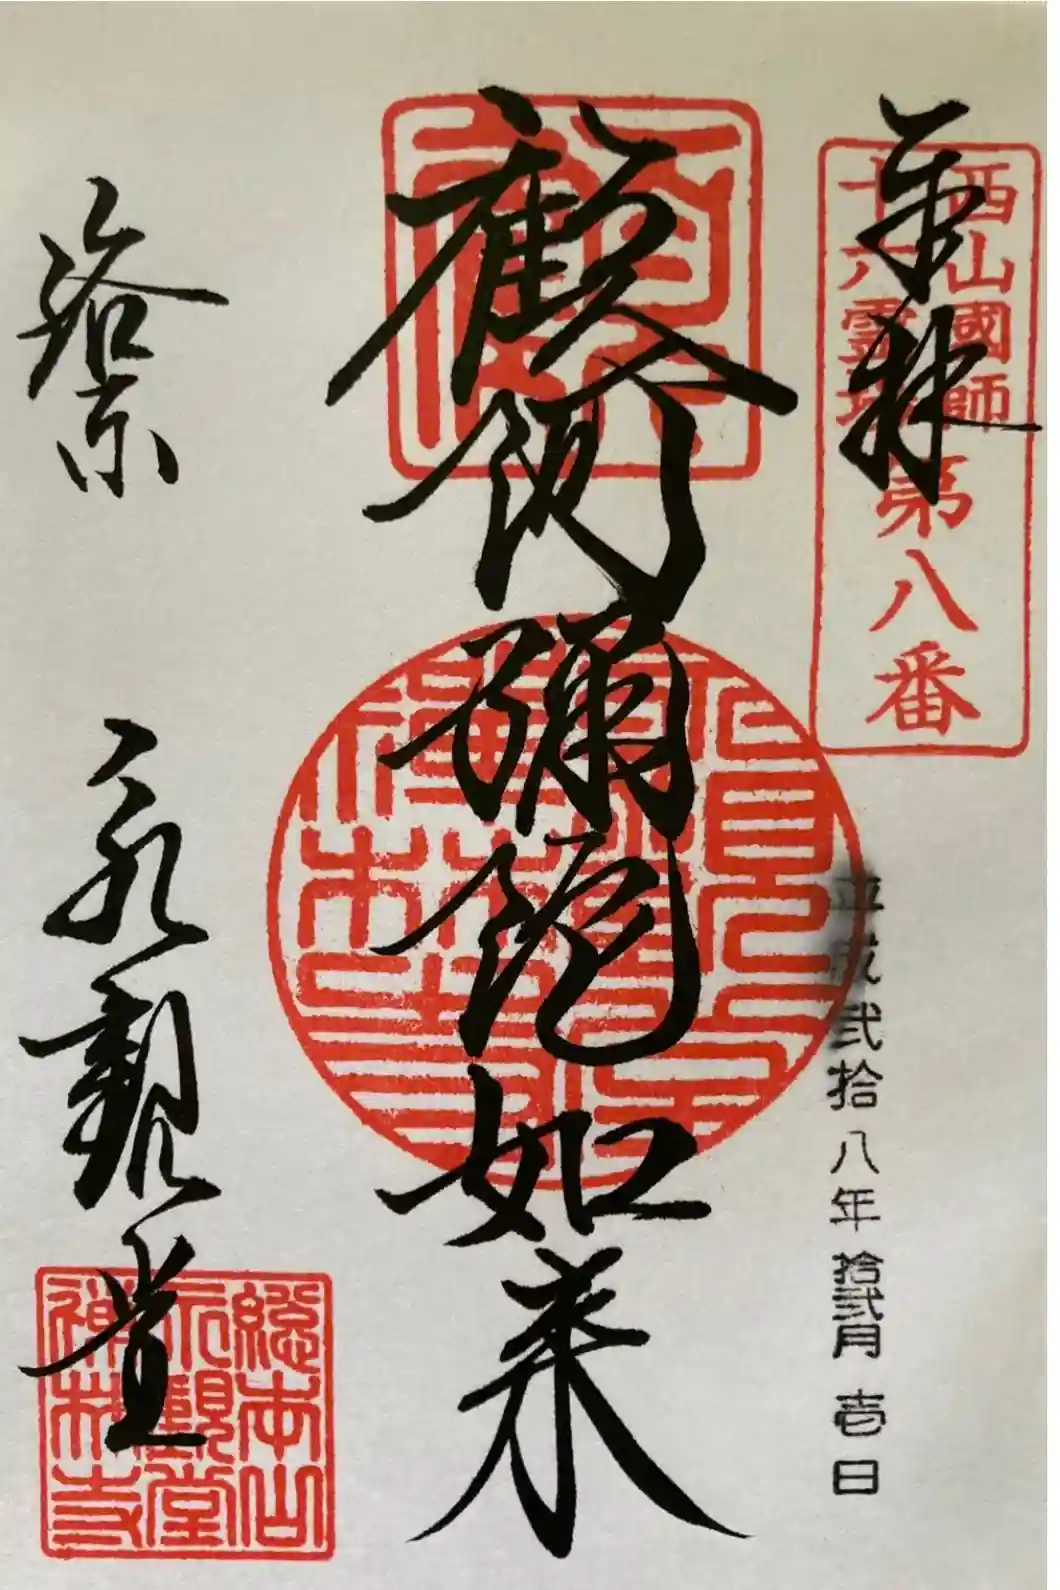 奉拝
西山國師
十六霊場
第八番
平成弐拾八年 拾弐月 壱日
顧阿彌陀如来
洛京
永觀堂
総本山
永觀堂
禅林寺